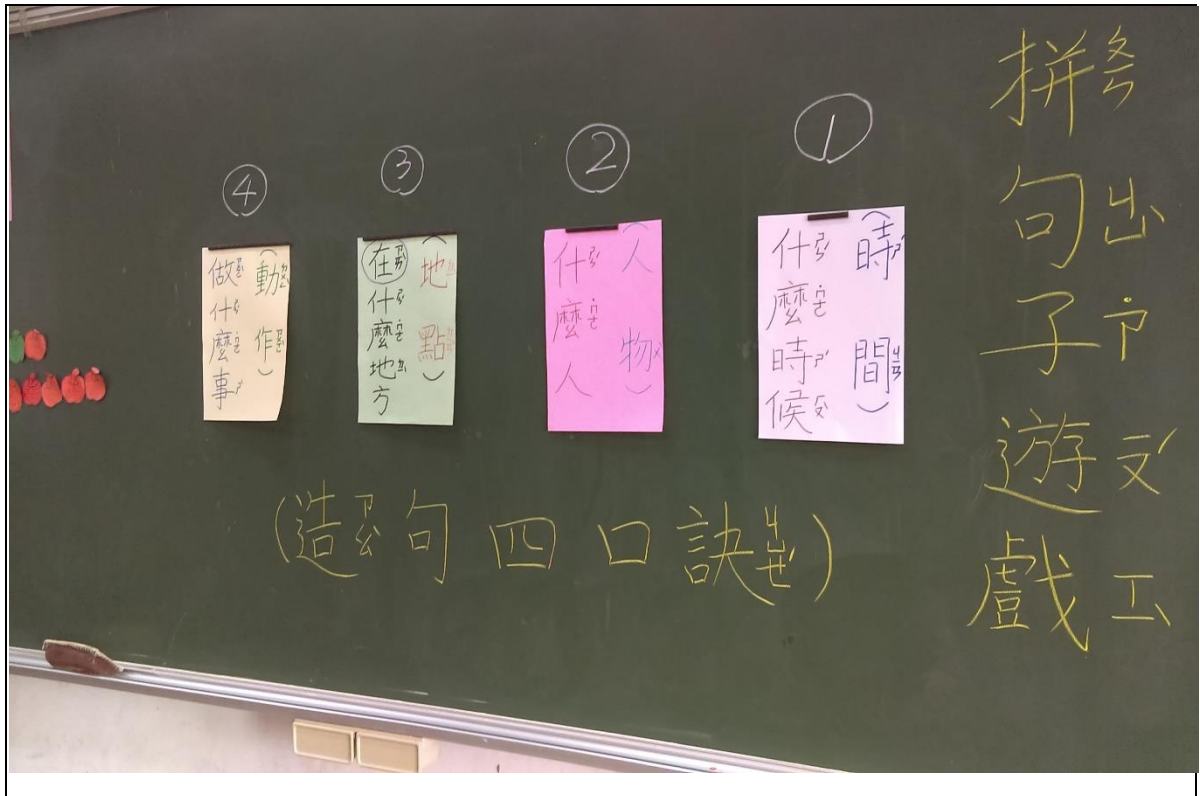 拼句子遊戲
①
(時間)
什麼時候
②
(人物)
什麼人
③
(地點)
在什麼地方
④
(動作)
做什麼事
(造句四口訣)